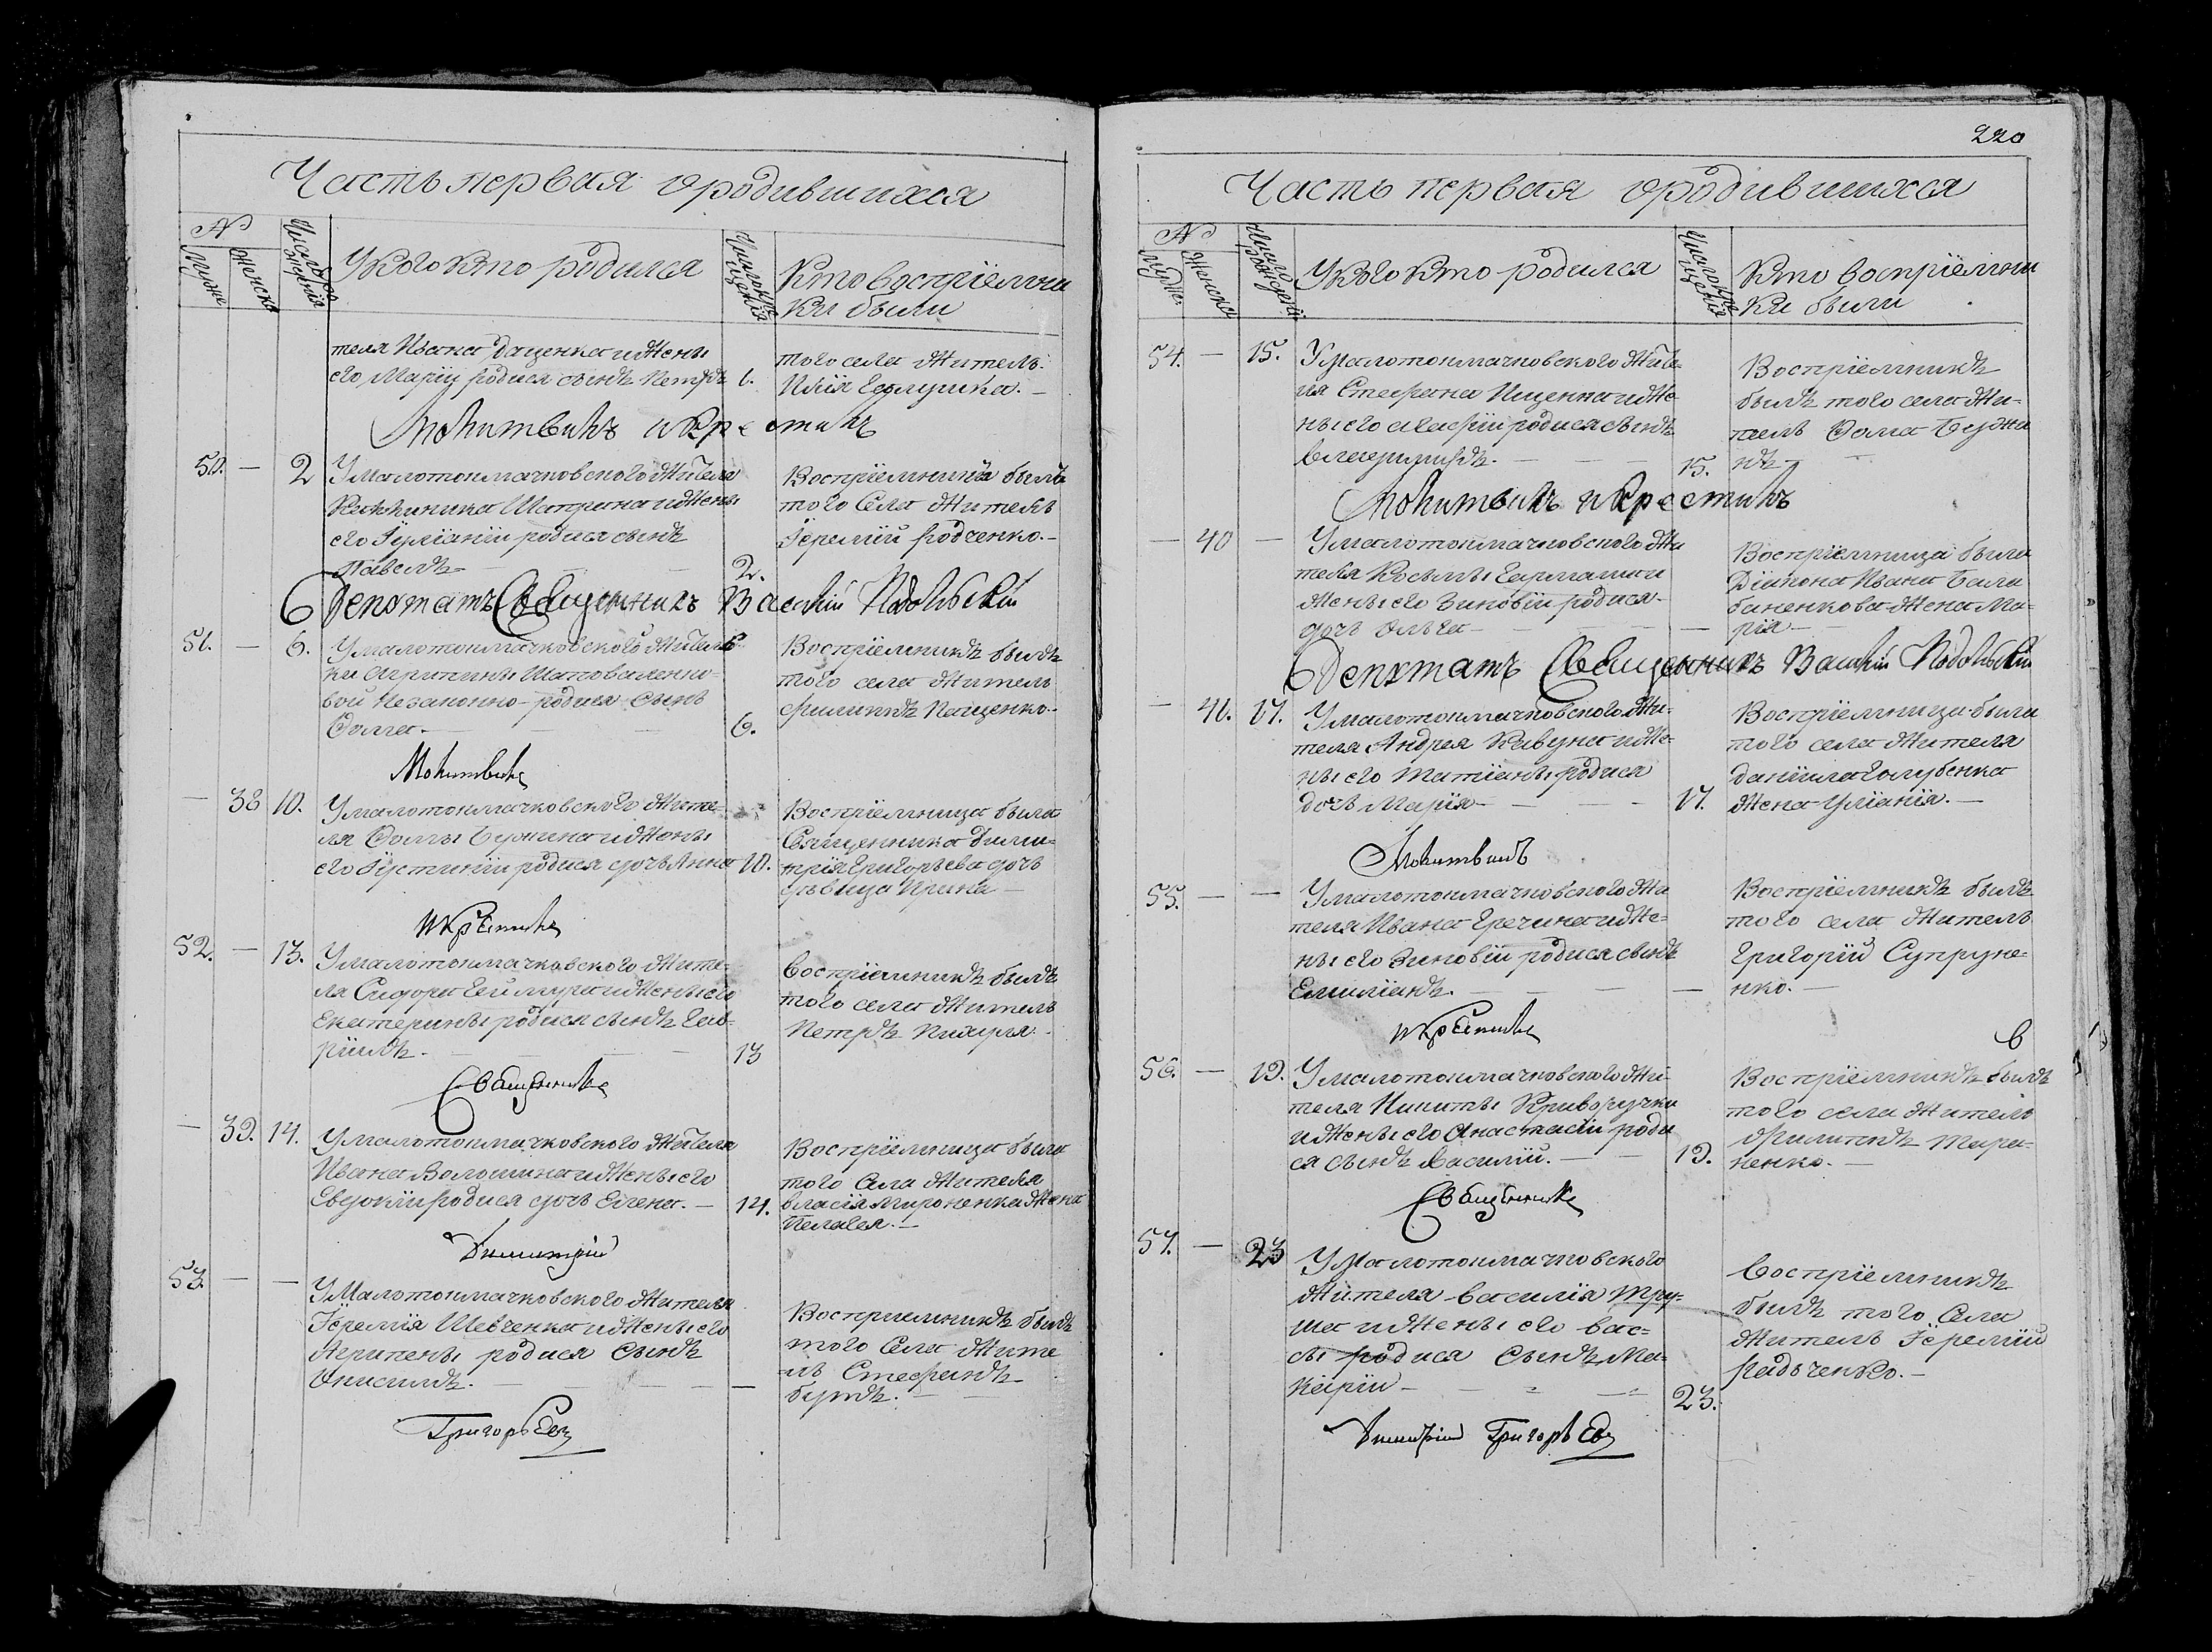 Часть первая о родившихся
№
Мужс Женска
Число рождения
У кого кто родился
Число крещения
Кто восприемни
ки были
теля Ивана Даценка и жены
его Марiи родися сынъ Петръ 1.
того села житель
Илiя Евлушка.
Молитвилъ и крестилъ
50. — 2 У малотокмачковского жителя
Калинника Шапрана и жены
его Iулiанiи родися сынъ
Павелъ 2.
Восприемникъ былъ
того села житель
Iеремiй Родченко.
Депутатъ Священникъ Василiй Подольскiй
51. — 6. У малотокмачковского жительки
Агрипины Шаповаленко-
вой незаконно родися сынъ
Фома. 6.
Восприемникъ былъ
того села житель
Филиппъ Пащенко.
Молитвилъ
— 38 10. У малотокмачковского жите-
ля Фомы Бужина и жены
его Iустинiи родися дочь Анна 10.
Восприемница была
Священника Дими-
трiя Григорьева дочь
дѣвица Ирина
и крестилъ
52. — 13. У малотокмачковского жите-
ля Сидора Геймура и жены его
Екатерины родися сынъ Гав-
рiилъ. 13
Восприемникъ былъ
того села житель
Петръ Пихиря.
Священникъ
— 39. 14. У малотокмачковского жителя
Ивана Волошина и жены его
Евдокiи родися дочь Елена. 14.
Восприемница была
того села жителя
Власiя Мироненка жена
Пелагея.
Димитрiй
53. — — У Малотокмачковского жителя
Iеремiя Шевченка и жены его
Агрипены родися сынъ
Онисимъ.
Восприемникъ былъ
того села жите
ль Стефанъ
Бурдъ.
Григорьевъ
220
Часть первая о родившихся
№
Мужс. Женска
Число рождения
У кого кто родился
Число крещения
Кто восприемни
ки были
54. — 15. У малотокмачковского жите-
ля Стефана Ищенка и же-
ны его Агафiи родися сынъ
Владимиръ. 15.
Восприемникъ
былъ того села жи-
тель Фома Бужи
нъ
Молитвилъ и крестилъ
— 40 — У малотокмачковского жи
теля Косьмы Гармаша и
жены его Зиновiи родися
дочь Ольга
Восприемница была
Дiякона Ивана Бала
баненкова жена Ма-
рiя
Депутатъ Священникъ Василiй Подольскiй
— 41. 17. У малотокмачковского жи-
теля Андрея Кавуна и же-
ны его Татiаны родися
дочь Марiя 17.
Восприемница была
того села жителя
Данiила Голубенка
жена Улiанiя.
Молитвилъ
55. — — У малотокмачковского жи
теля Ивана Гречина и же-
ны его Зиновiи родися сынъ
Емилiанъ.
Восприемникъ былъ
того села житель
Григорiй Супруне-
нко.
и крестилъ
56. — 19. У малотокмачковского жи-
теля Никиты Криворучки
и жены его Анастасiи роди
ся сынъ Василiй. 19.
Восприемникъ былъ
того села житель
Филиппъ Тара-
ненко.
Священникъ
57. — 23 У малотокмачковского
жителя Василiя Тру-
ша и жены его Вас-
сы родися сынъ Ма-
карiй 23.
Восприемникъ
былъ того села
житель Iеремiй
Радьченко.
Димитрiй Григорьевъ